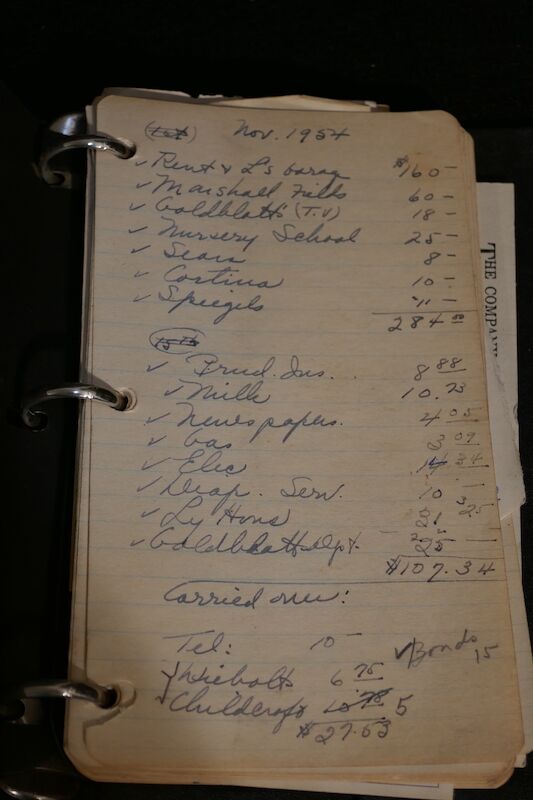 (1st) Nov. 1954
✓ Rent & L's Garag $160 –
✓ Marshall Fields 60 –
✓ Goldblatts (T.V) 18 –
✓ Nursery School 25 –
✓ Sears 8 –
✓ Cortina 10 –
✓ Spiegels 11 –
284 00
15th
✓ Prud. Ins. . . 8 88
✓ Milk 10.73
✓ Newspapers. 4 05
✓ Gas 3 09
✓ Elec 34
✓ Diap. Serv. 10 –
✓ Ly Hons
✓ Goldblatts Dpt. 25 –
$107.34
Carried over:
Tel: 10 –
✓ Bonds 15
Wiebolts 6 75
Childcraft 5
$27.53
THE COMPAN